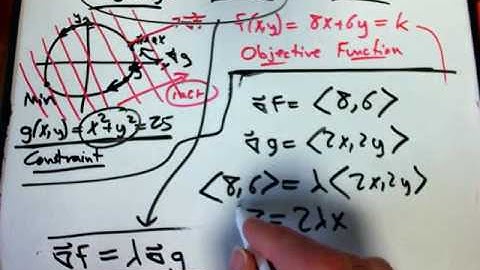 y
max
∇⃗g
f(x,y) = 8x+6y = k
Objective Function
Min
incr
g(x,y) = x²+y² = 25
Constraint
∇⃗f = <8,6>
∇⃗g = <2x,2y>
<8,6> = λ<2x,2y>
= 2λx
∇⃗f = λ∇⃗g